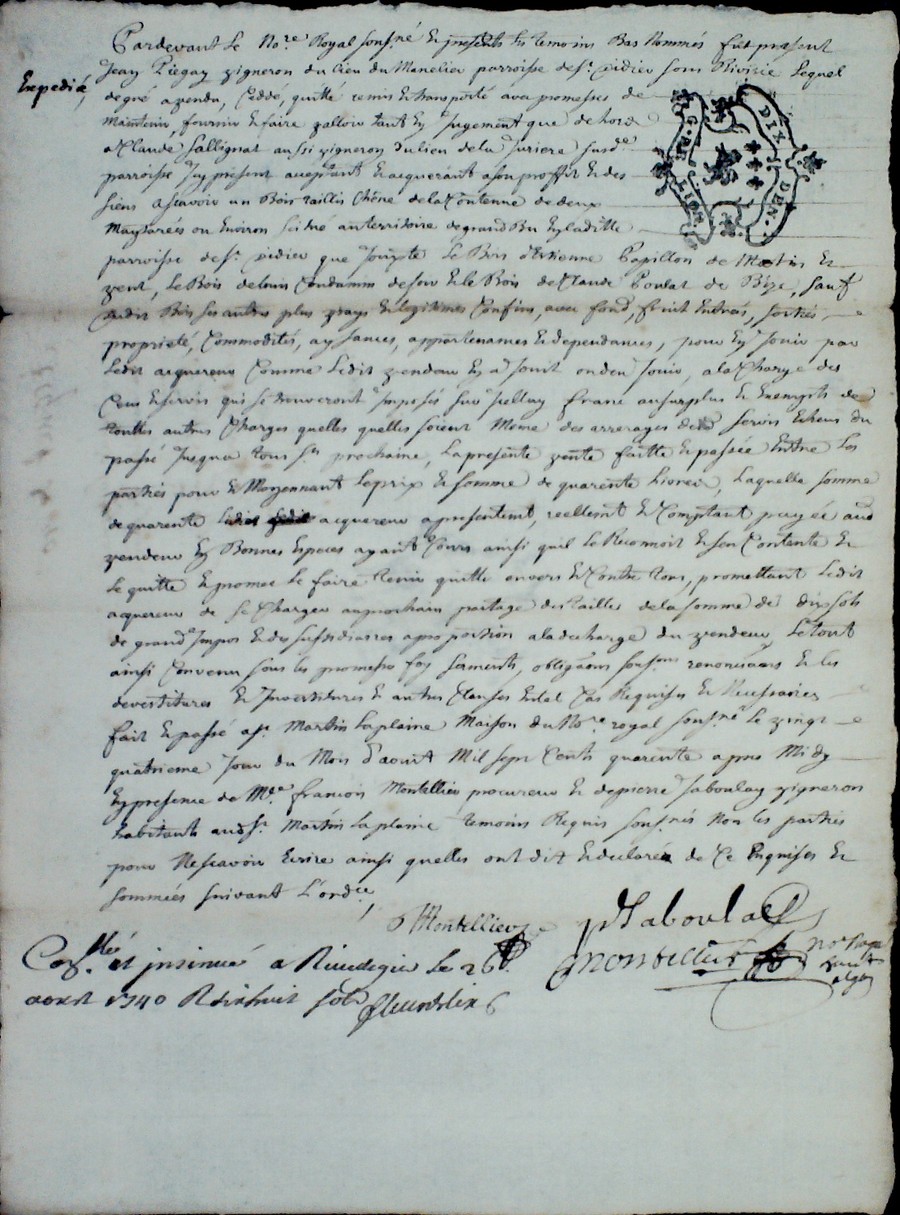 Pardevant Le No.re Royal sous.né Et presents les temoins Bas Nommés fut present
Expedié,
Jean Piegay vigneron du lieu du Manelier parroisse de st. Didier sous Rivirie Lequel
de gré a vendu, Ceddé, quitté remis Et transporté avec promesses de
Maintenir, fournir Et faire valloir tant En Jugement que dehors
a Claude Sallignat aussi vigneron du lieu de la Juriere susd.e
parroisse Icy present acceptant Et acquerant a son proffit Et des
siens a scavoir un Bois taillis Chêne de la Contenue de deux
ou Environ scitué au territoire de grand Bu En laditte
parroisse de st. Didier que Jouxte Le Bois d'Estienne Papillon de Matin Et
vent, Le Bois de de soir Et le Bois de Claude Poulat de Bize, sauf
dudit Bois ses autres plus vrays Et legitimes Confins, avec fond, fruit Entrées, sorties
proprieté, Commodités, aysances, appartenances Et dependances, pour En Jouir par
Ledit acquereur Comme Ledit vendeur En a Jouit ou deu Jouir, a la Charge des
Cens Et servis qui se trouveront Imposés sur Jcelluy franc au surplus Et Exempts de
touttes autres Charges quelles quelles soient Meme des arrerages de servis Et cens du
passé Jusqua tous sts prochaine, La presente vente faitte Et passée Entre Les
parties pour Et Moyennant Le prix Et somme de quarente Livres, Laquelle somme
de quarente Ledit acquereur a presentemt, reellemt Et Comptant payée aud
vendeur En Bonnes Especes ayant Cours ainsi quil Le Reconnoit Et sen Contente Et
Le quitte Et promet Le faire tenir quitte envers Et Contre tous, promettant Ledit
acquereur de se Charger au prochain partage des tailles de la somme de dix sols
de grand Impos Et des subsidiaires a proportion a la decharge du vendeur, Le tout
ainsi Convenu sous les promesses foy serments, obligãons sousons renonciãons Et les
devestitures Et Jnvestitures Et autres Clauses En tel Cas Requises Et Necessaires
fait Et passé a st. Martin La plaine Maison du No.re royal sous.né Le vingt
quatrieme Jour du Mois d'aoust Mil sept Cents quarente apres Midy
En presence de Me. francois Montellier procureur Et de pierre Jaboulay vigneron
habitants aud st. Martin La plaine temoins Requis sous.nés Non les parties
pour Ne scavoir Ecrire ainsi quelles ont dit Et declaré de Ce Enquises Et
sommées suivant L'ord.ce,
Montellier
P Jaboulay
Montellier
no.e Roya
Con.llé et insinué a Rivedegier Le 26e.
aoust 1740 R dixhuit sols
G. DE LION.
DIX DEN.